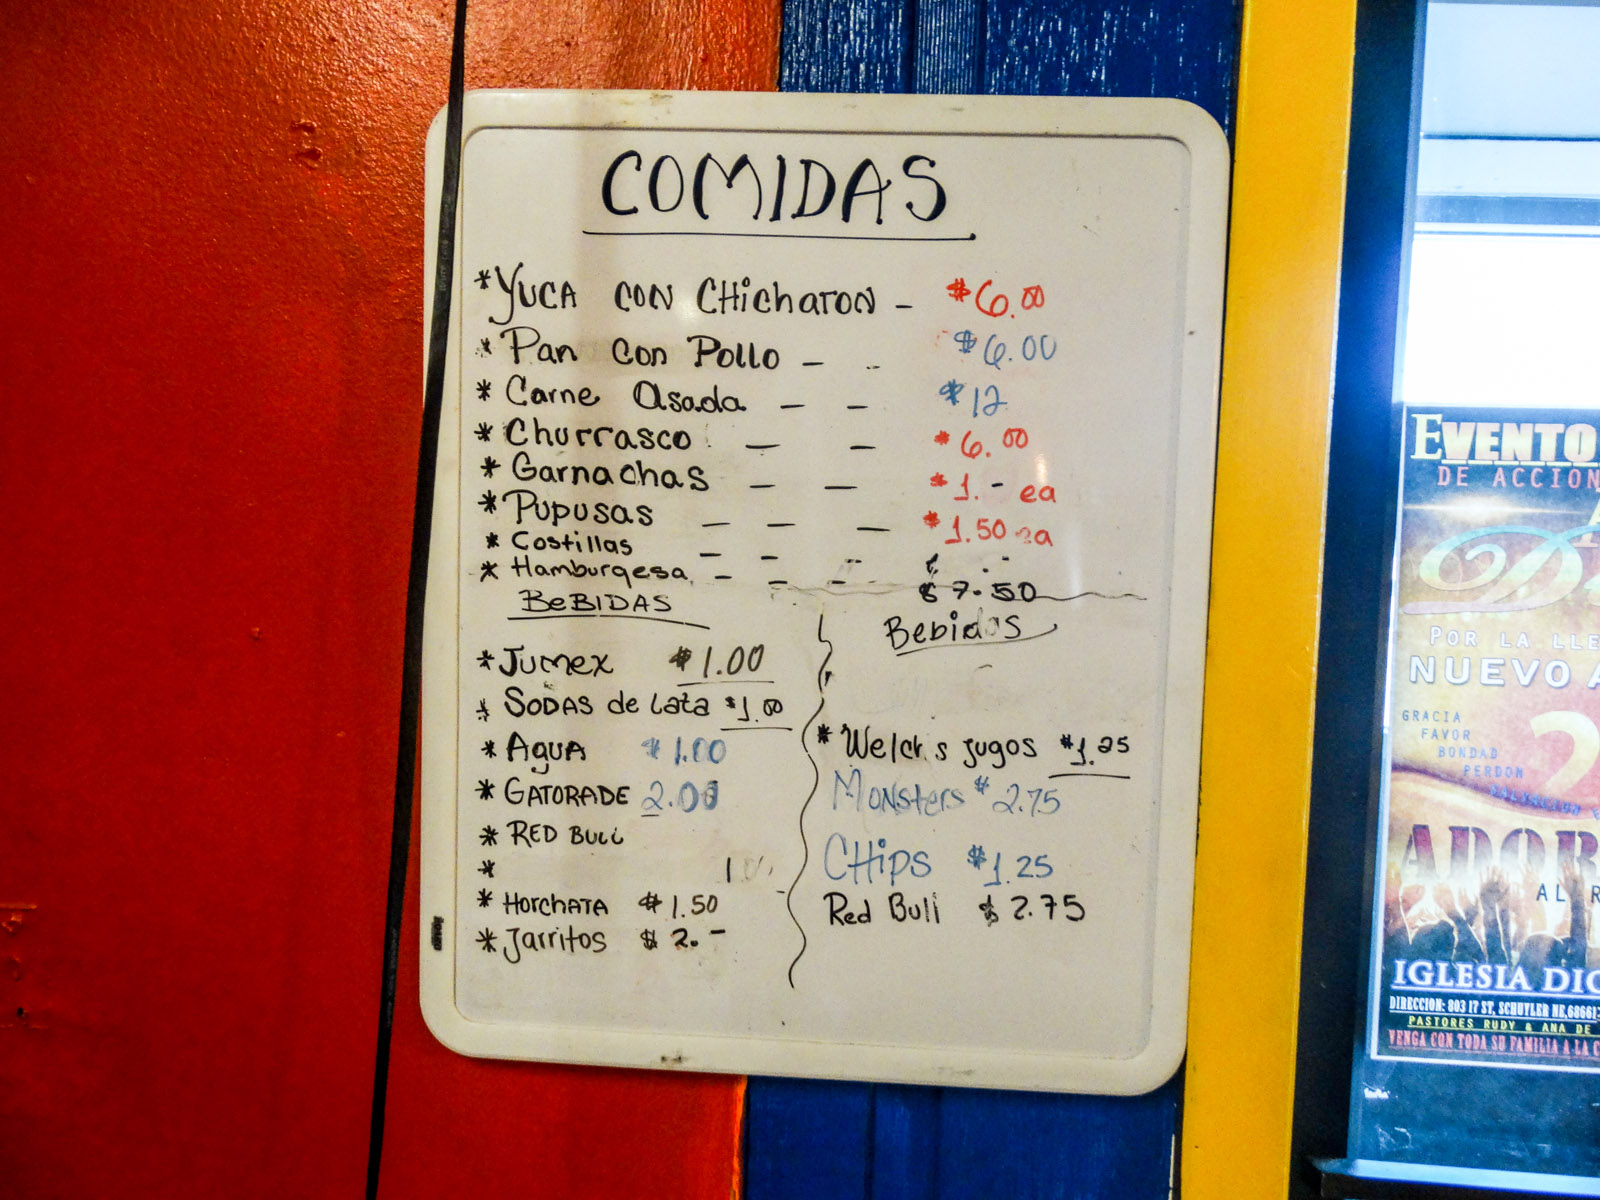 COMIDAS
* YUCA CON CHicharoN - $6.00
* Pan con Pollo - - $6.00
* Carne Asada - - $12
* Churrasco - - $6.00
* Garnachas - - $1.- ea
* Pupusas - - - $1.50 ea
* Costillas - - -
* Hamburgesa - - - $7.50
BeBIDAS
* Jumex $1.00
* SODAS de Lata $1.00
* AguA $1.00
* GATORADE 2.00
* RED BULL
*
* HorchATA $1.50
* Jarritos $2.-
Bebidas
* Welch's jugos $1.25
Monsters $2.75
CHips $1.25
Red Bull $2.75
EVENTO
DE ACCION
POR LA LLE
NUEVO A
GRACIA
FAVOR
BONDAD
PERDON
2
ADOR
AL R
IGLESIA DIO
DIRECCION: 803 17 ST, SCHUYLER NE, 68661
PASTORES RUDY & ANA DE
VENGA CON TODA SU FAMILIA A LA C